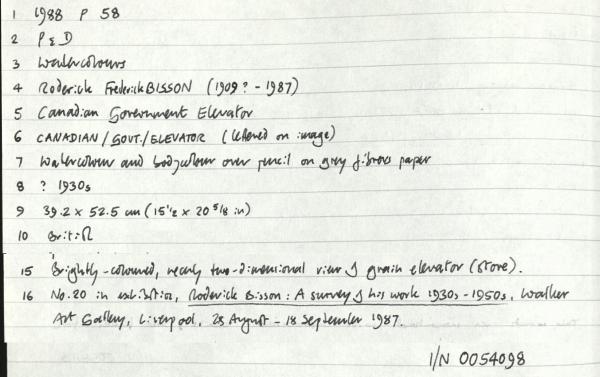 1 1988 P 58
2 P & D
3 Watercolours
4 Roderick Frederick BISSON (1909? - 1987)
5 Canadian Government Elevator
6 CANADIAN / GOVT. / ELEVATOR (lettered on image)
7 Watercolour and bodycolour over pencil on grey fibrous paper
8 ? 1930s
9 39.2 x 52.5 cm (15 1/2 x 20 5/8 in)
10 British
15 Brightly-coloured, nearly two-dimensional view of grain elevator (store).
16 No. 20 in exhibition, Roderick Bisson: A survey of his work 1930s - 1950s, Walker
Art Gallery, Liverpool, 28 August - 18 September 1987.
I/N 0054098